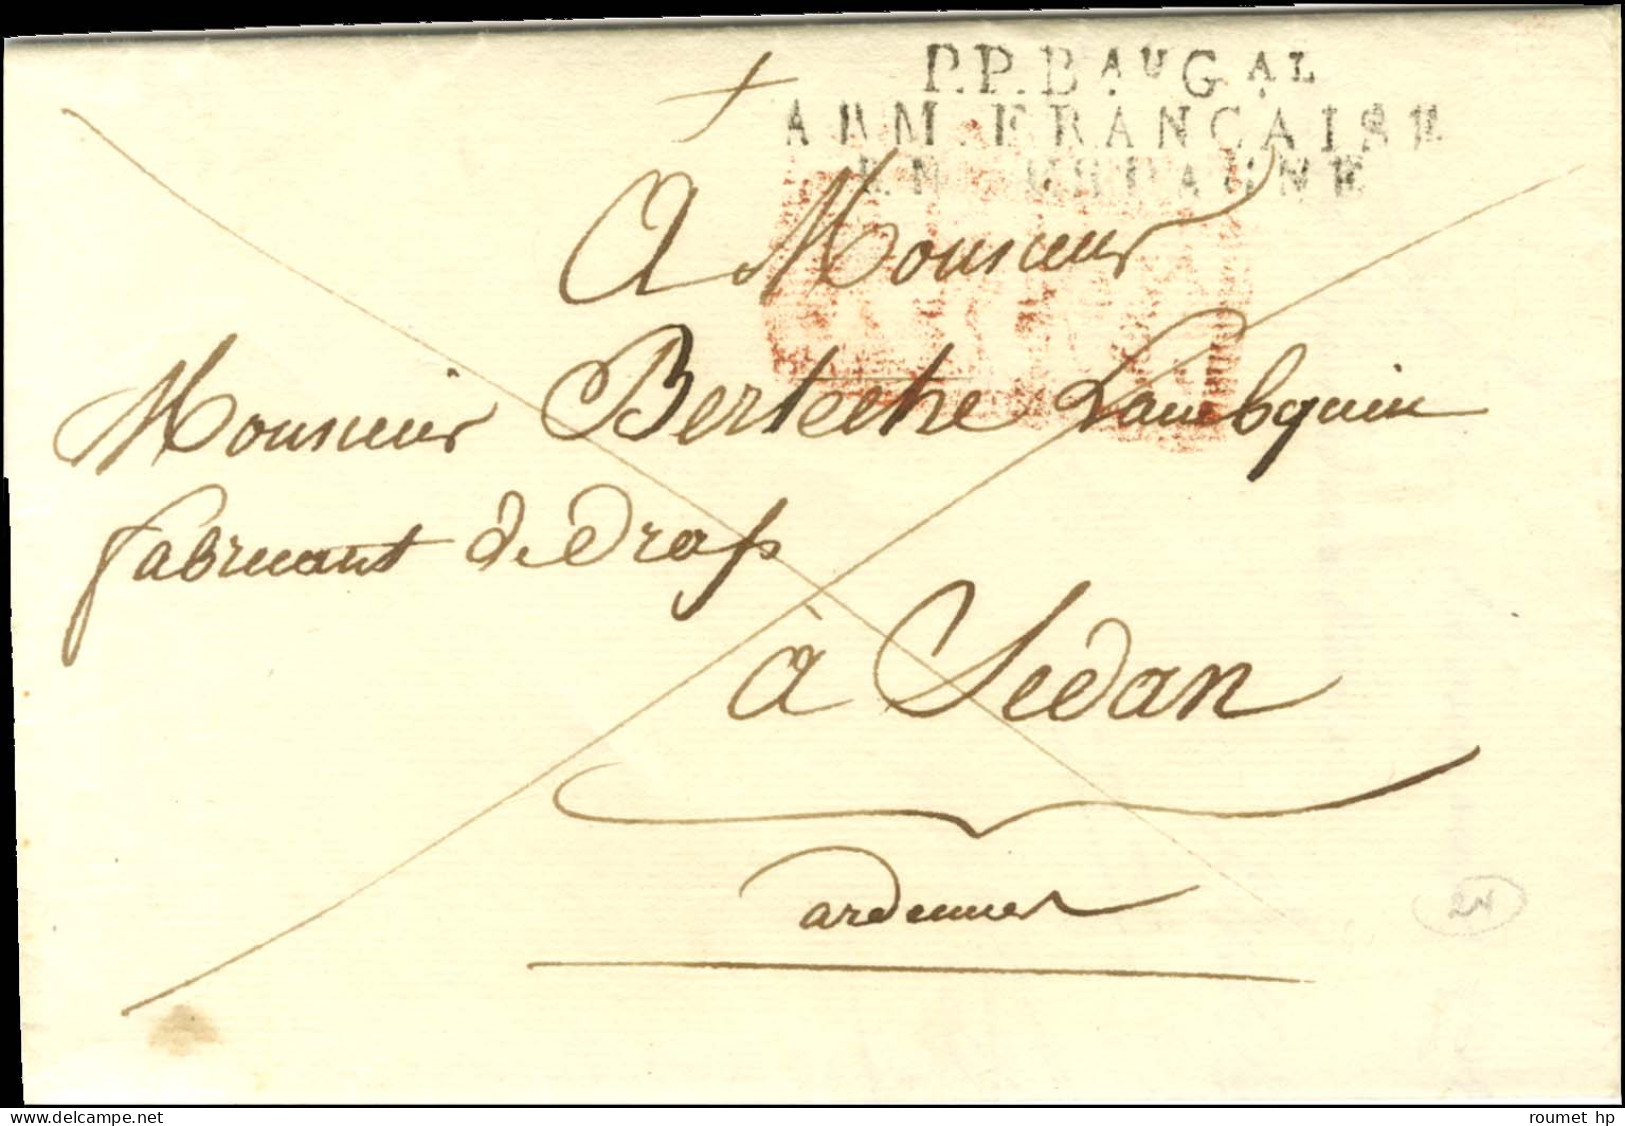 P.P.BAUGAL
ARM. FRANCAISE
EN ESPAGNE
A Monsieur
Monsieur Berteche Lambquin
fabricant de Drap
à Sedan
ardennes
24
delcampe.net
roumet hp